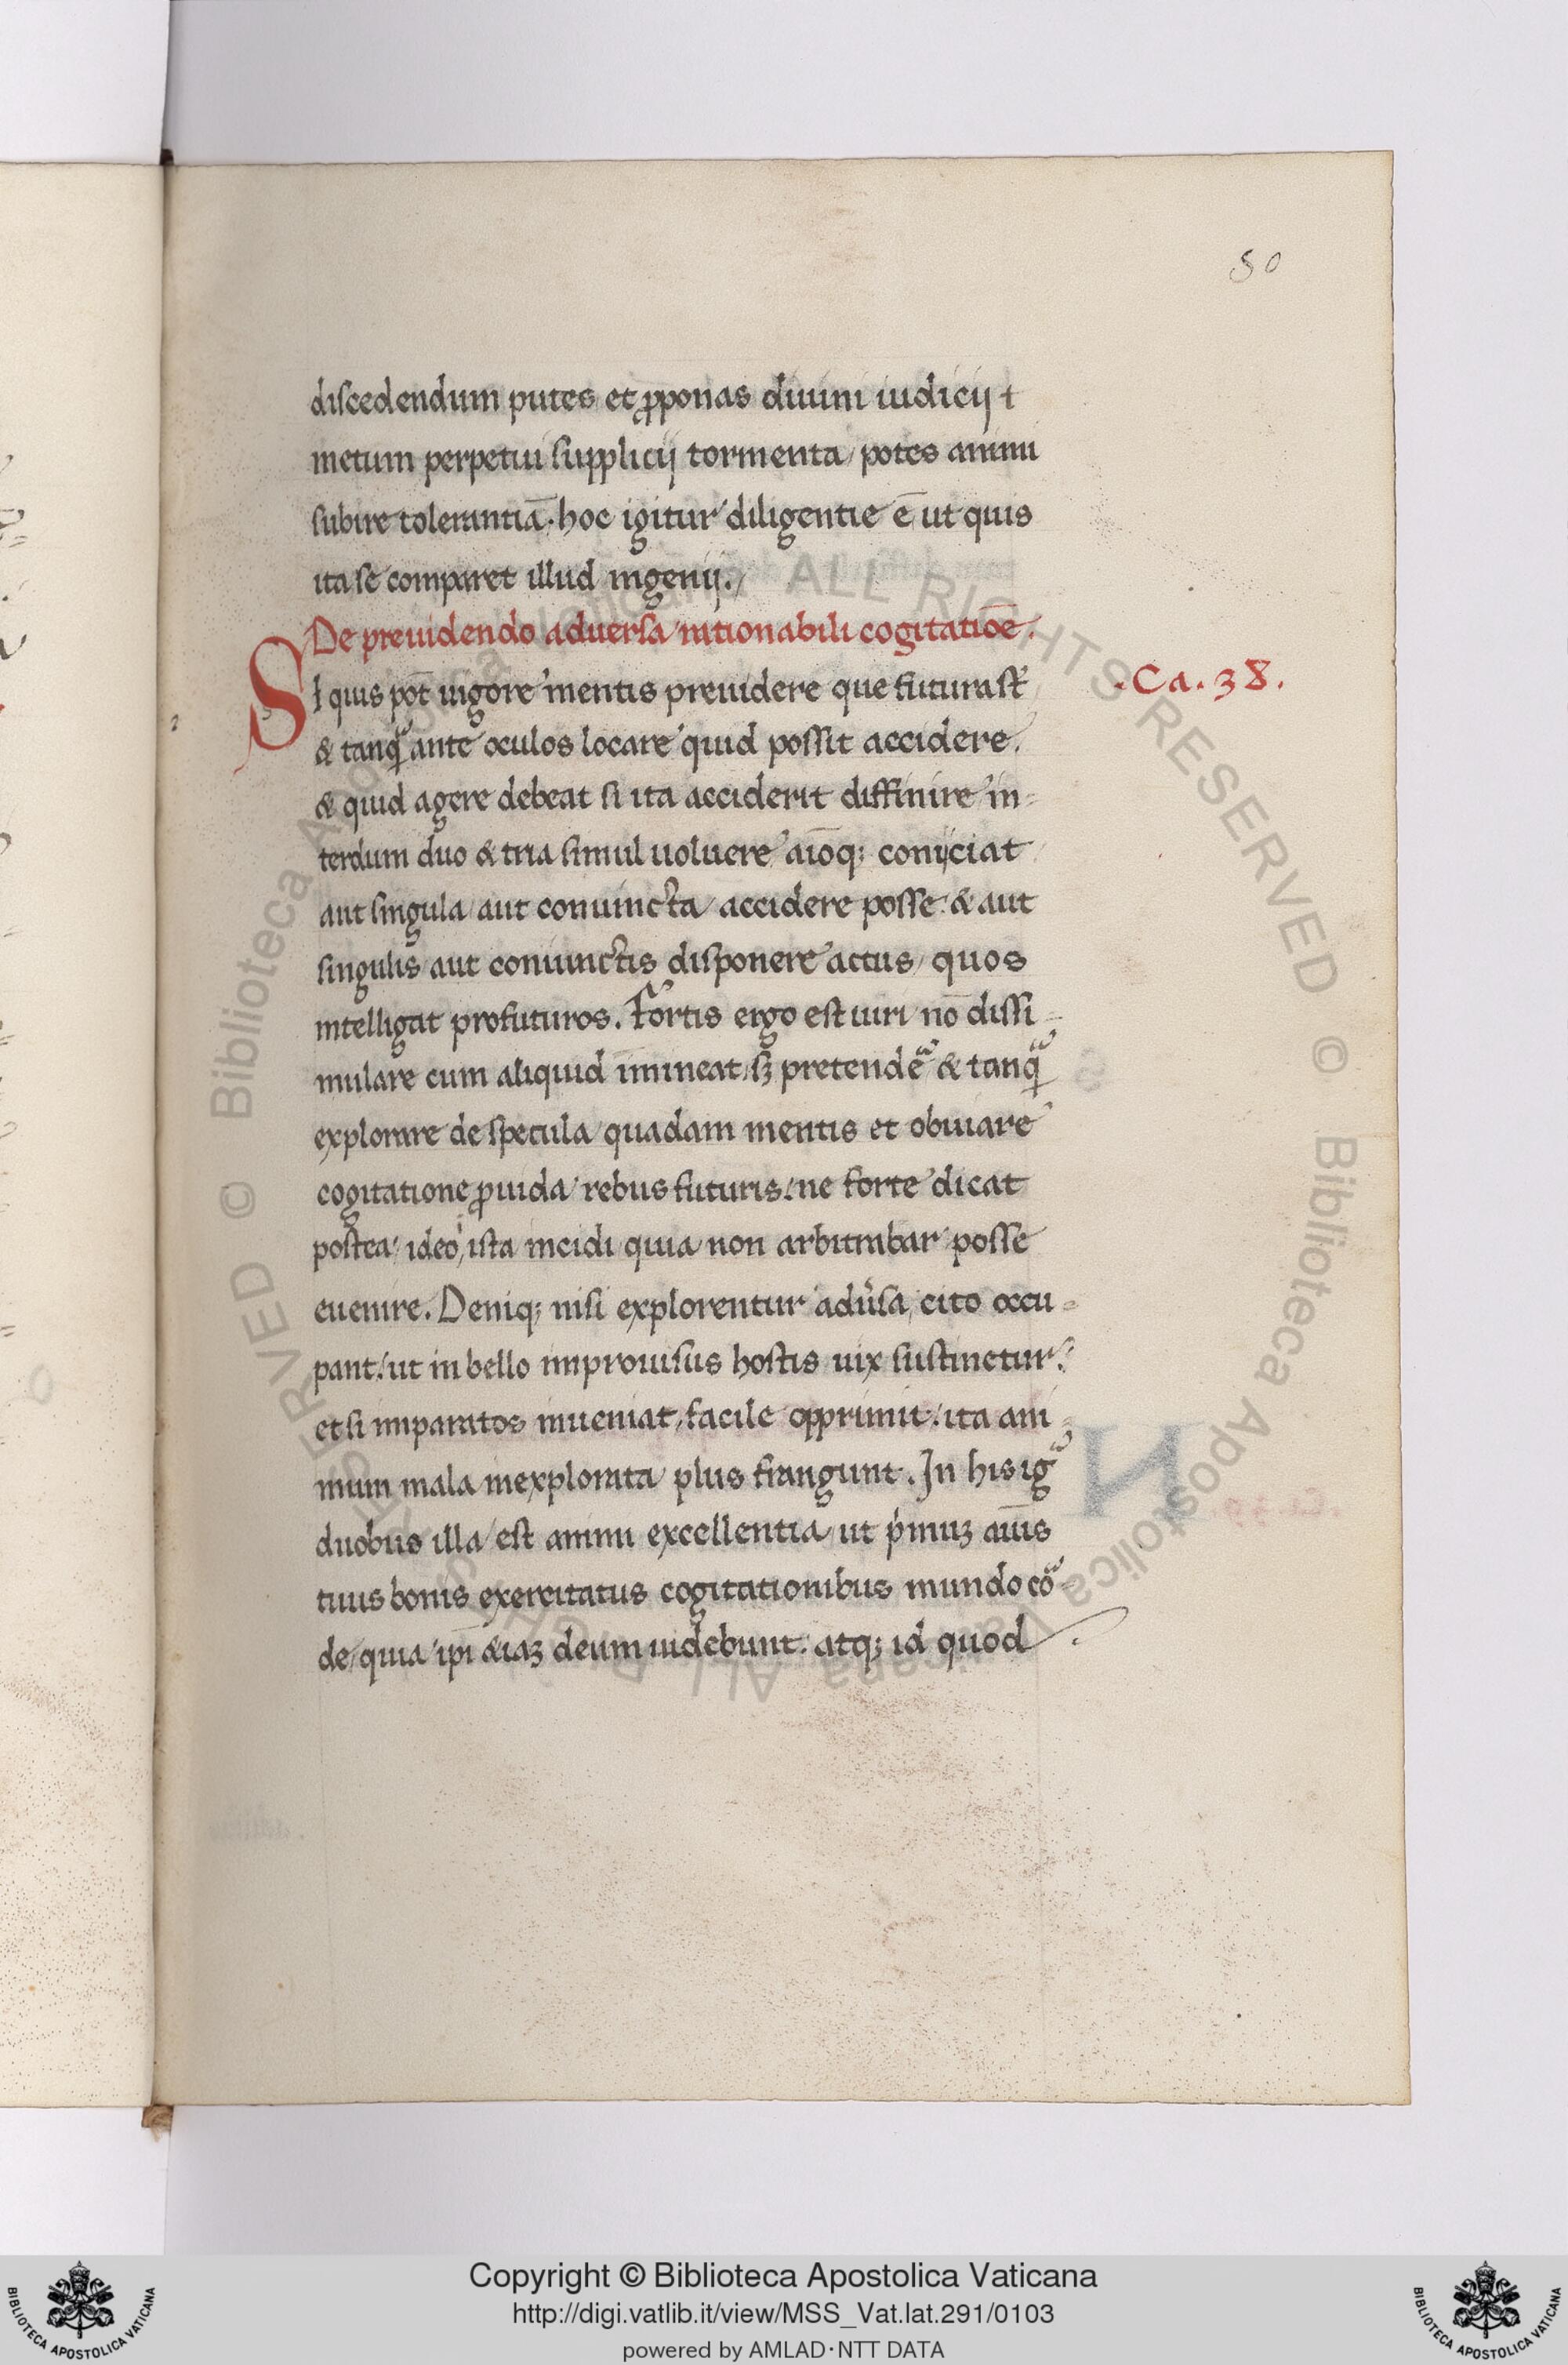 50
discedendum putes et ꝓponas diuini iudicij t
metum perpetui supplicij tormenta, potes animi
subire tolerantiā. hoc igitur diligentie ē ut quis
ita se comparet illud ingenij.
De preuidendo aduersa rationabili cogitatiōe.
.Ca. 38.
SI quis pōt uigore mentis preuidere que futura st̄
& tanq̃ ante oculos locare quid possit accidere.
& quid agere debeat si ita acciderit diffinire in=
terdum duo & tria simul uoluere aīoq; conijciat
aut singula aut coniuncta accidere posse. & aut
singulis aut coniunctis disponere actus, quos
intelligat profuturos. Fortis ergo est uiri nō dissi=
mulare cum aliquid īmineat, sꝫ pretendē & tanq̃
explorare de specula quadam mentis et obuiare
cogitatione ꝓuida rebus futuris. ne forte dicat
postea. ideo ista incidi quia non arbitrabar posse
euenire. Deniq; nisi explorentur adu̓sa, cito occu=
pant. ut in bello improuisus hostis uix sustinetur.
et si imparatos inueniat, facile opprimit. ita ani=
mum mala inexplorata plus frangunt. In his igr̃
duobus illa est animi excellentia, ut p̓muꝫ aīus
tuus bonis exercitatus cogitationibus mundo cō=
de, quia ipī &iaꝫ deum uidebunt. atq; id quod
Copyright © Biblioteca Apostolica Vaticana
http://digi.vatlib.it/view/MSS_Vat.lat.291/0103
powered by AMLAD·NTT DATA